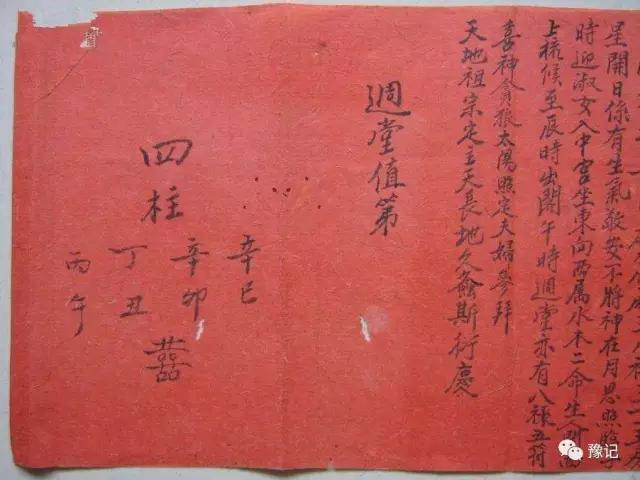 星開日係有生氣敬安不將神在月恩照臨
時迎淑女入中宮坐東向西屬水木二命生人
上樣候至辰時出閣午時週堂亦有八祿五符
喜神貪狼太陽照定夫婦參拜
天地祖宗定主天長地久螽斯衍慶
週堂值第
四柱
辛巳
辛卯
丁丑
丙午
囍
豫记